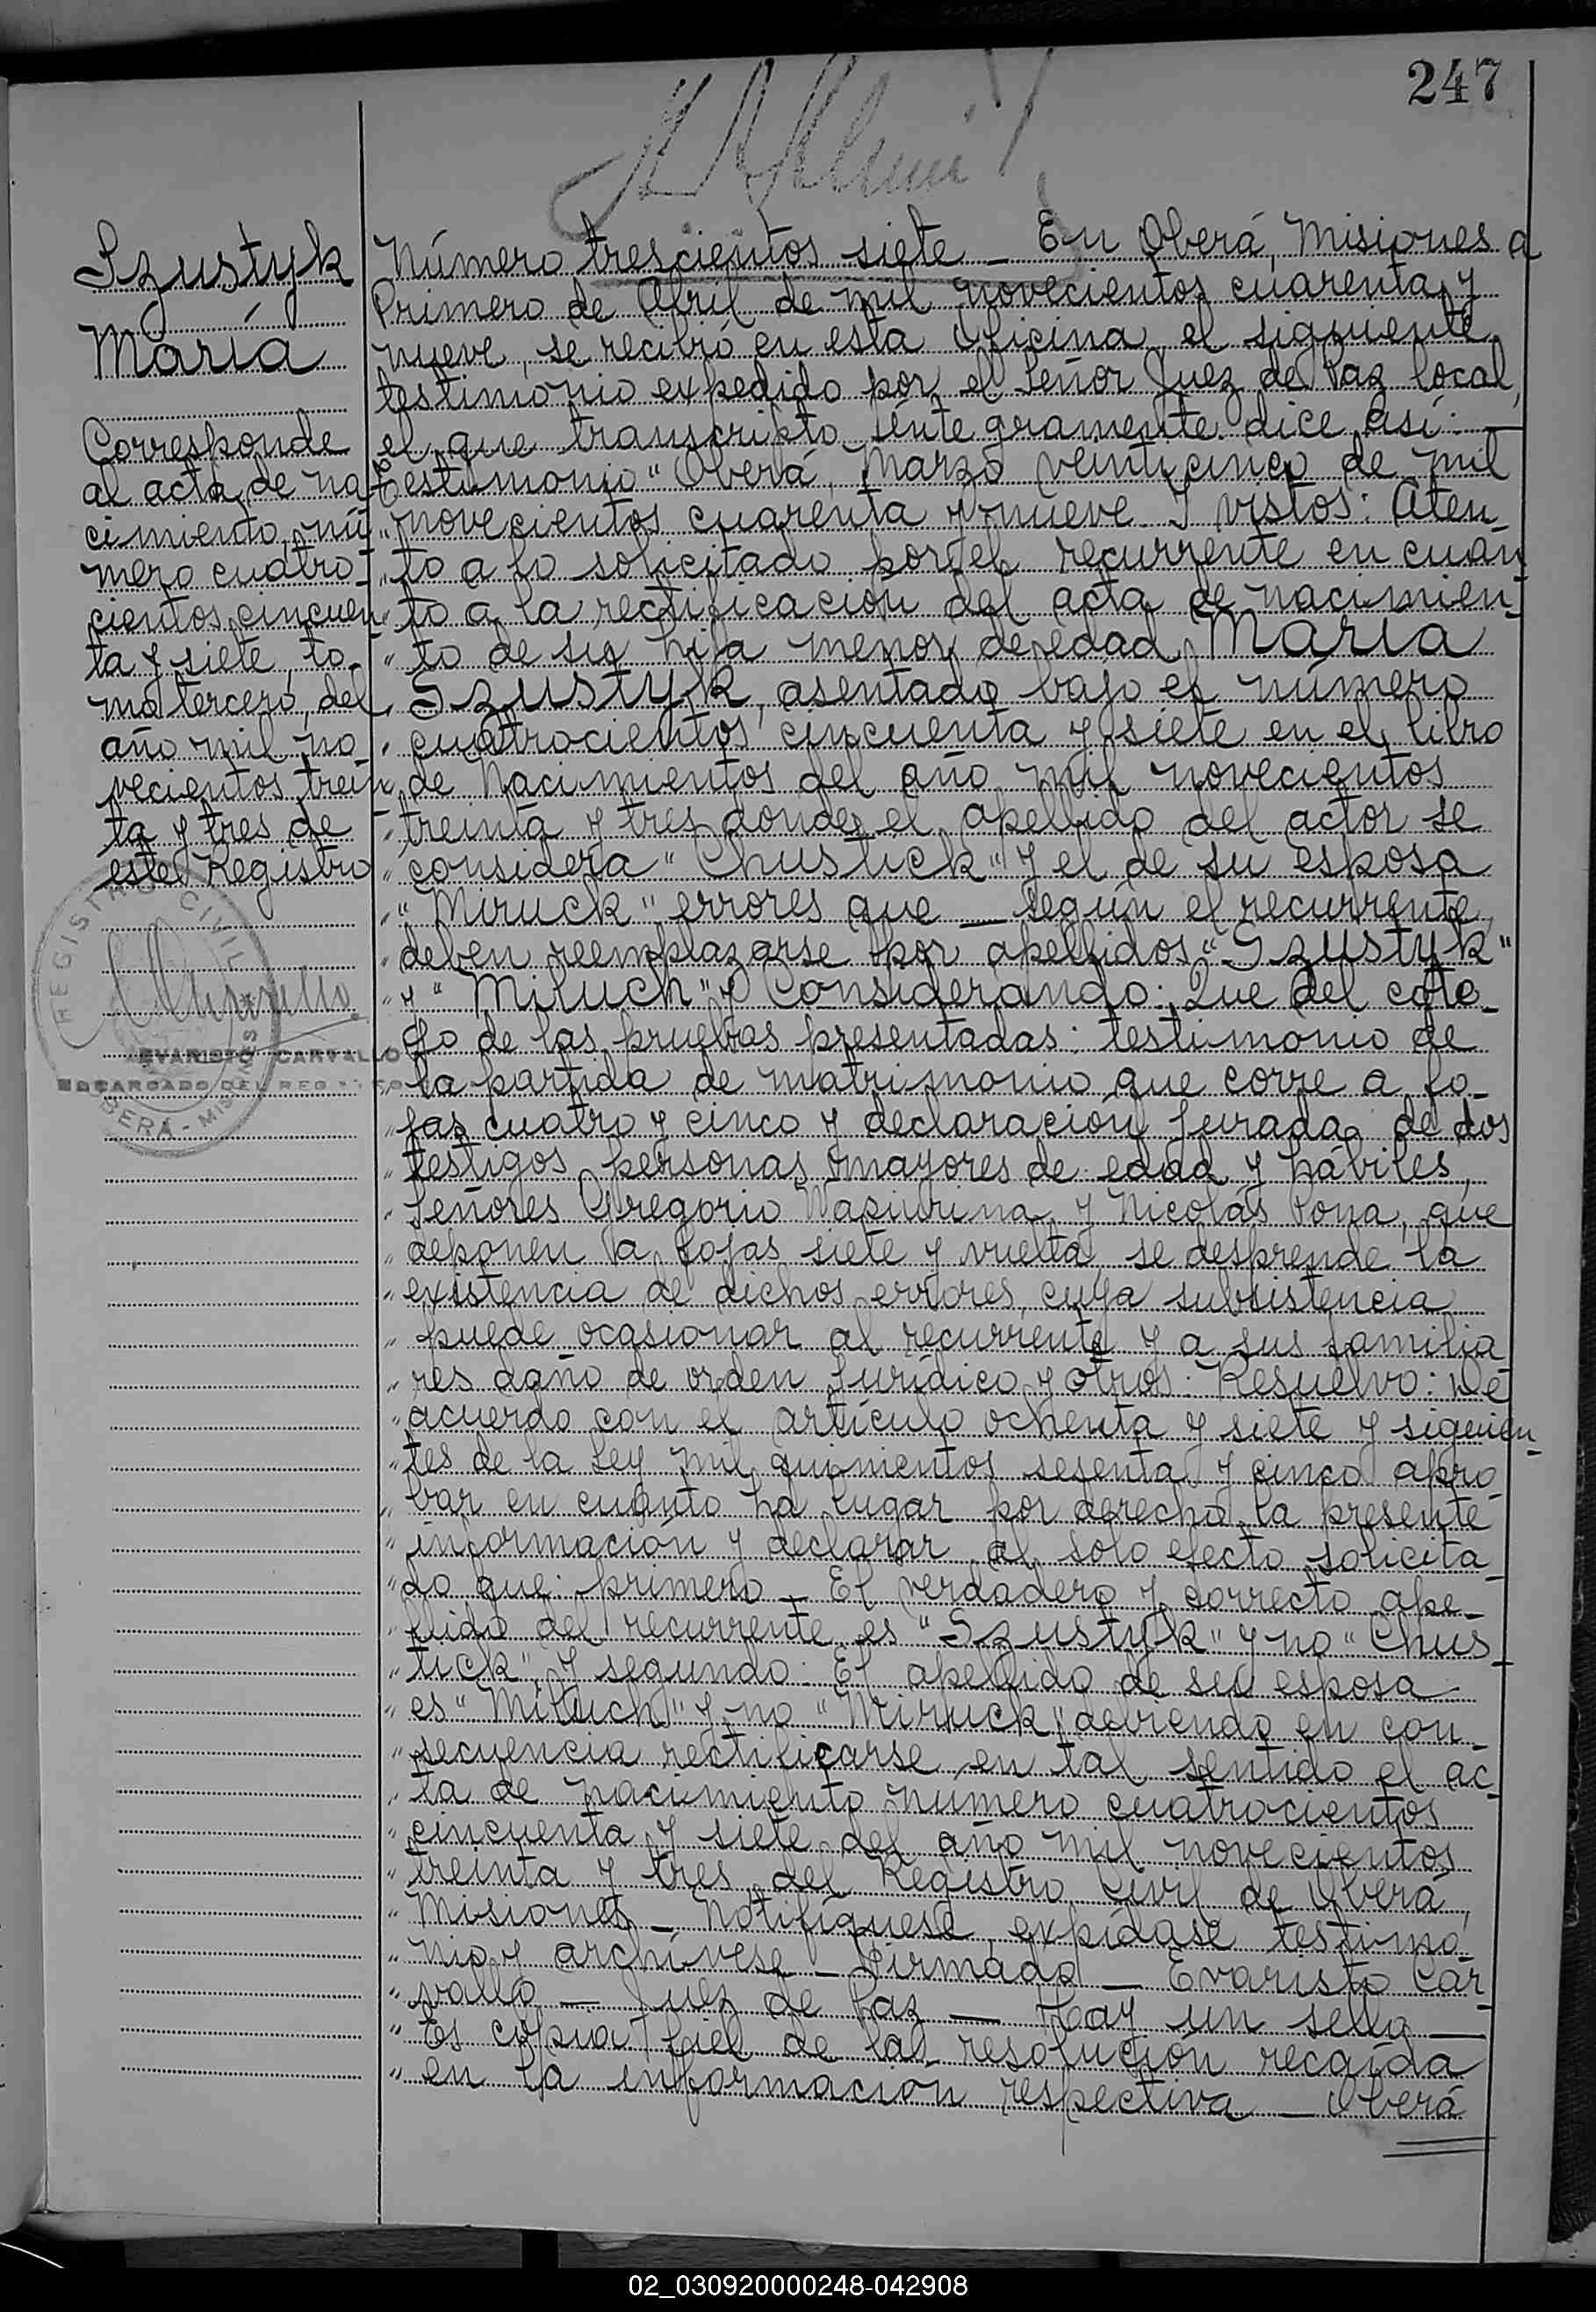 247
Szustyk
María
Corresponde
al acta de na-
cimiento nú-
mero cuatro-
cientos cincuen-
ta y siete, to-
mo tercero, del
año mil no-
vecientos trein-
ta y tres de
este Registro
REGISTRO CIVIL
EVARISTO CARVALLO
ENCARGADO DEL REGISTRO
OBERÁ - MISIONES
Número trescientos siete — En Oberá, Misiones a
Primero de Abril de mil novecientos cuarenta y
nueve, se recibió en esta Oficina el siguiente
testimonio expedido por el Señor Juez de Paz local,
el que transcripto íntegramente dice así: —
Testimonio "Oberá, Marzo veinticinco de mil
" novecientos cuarenta y nueve. Y vistos: Aten-
" to a lo solicitado por el recurrente en cuan
" to a la rectificación del acta de nacimien-
" to de su hija menor de edad María
" Szustyk, asentado bajo el número
" cuatrocientos cincuenta y siete en el libro
" de Nacimientos del año mil novecientos
" treinta y tres donde el apellido del actor se
" considera "Chustick" y el de su esposa
" "Miruck" errores que — según el recurrente
" deben reemplazarse por apellidos "Szustyk"
" y "Miluch" y Considerando: Que del cote-
" jo de las pruebas presentadas: testimonio de
" la partida de matrimonio que corre a fo-
" jas cuatro y cinco y declaración jurada de dos
" testigos personas mayores de edad y hábiles,
" Señores Gregorio y Nicolás Pona, que
" deponen a fojas siete y vuelta, se desprende la
" existencia de dichos errores, cuya subsistencia
" puede ocasionar al recurrente y a sus familia
" res daño de orden jurídico y otros: Resuelvo: De
" acuerdo con el artículo ochenta y siete y siguien-
" tes de la Ley mil quinientos sesenta y cinco apro-
" bar en cuanto ha lugar por derecho la presente
" información y declarar al solo efecto solicita-
" do que: primero — El verdadero y correcto ape-
" llido del recurrente es "Szustyk" y no "Chus-
" tick" y segundo: El apellido de su esposa
" es "Miluch" y no "Miruck" debiendo en con-
" secuencia rectificarse en tal sentido el ac-
" ta de nacimiento número cuatrocientos
" cincuenta y siete del año mil novecientos
" treinta y tres del Registro Civil de Oberá,
" Misiones — Notifíquese, expídase testimo-
" nio y archívese — Firmado — Evaristo Car-
" vallo — Juez de Paz — Hay un sello —
" Es copia fiel de la resolución recaída
" en la información respectiva — Oberá
02_030920000248-042908